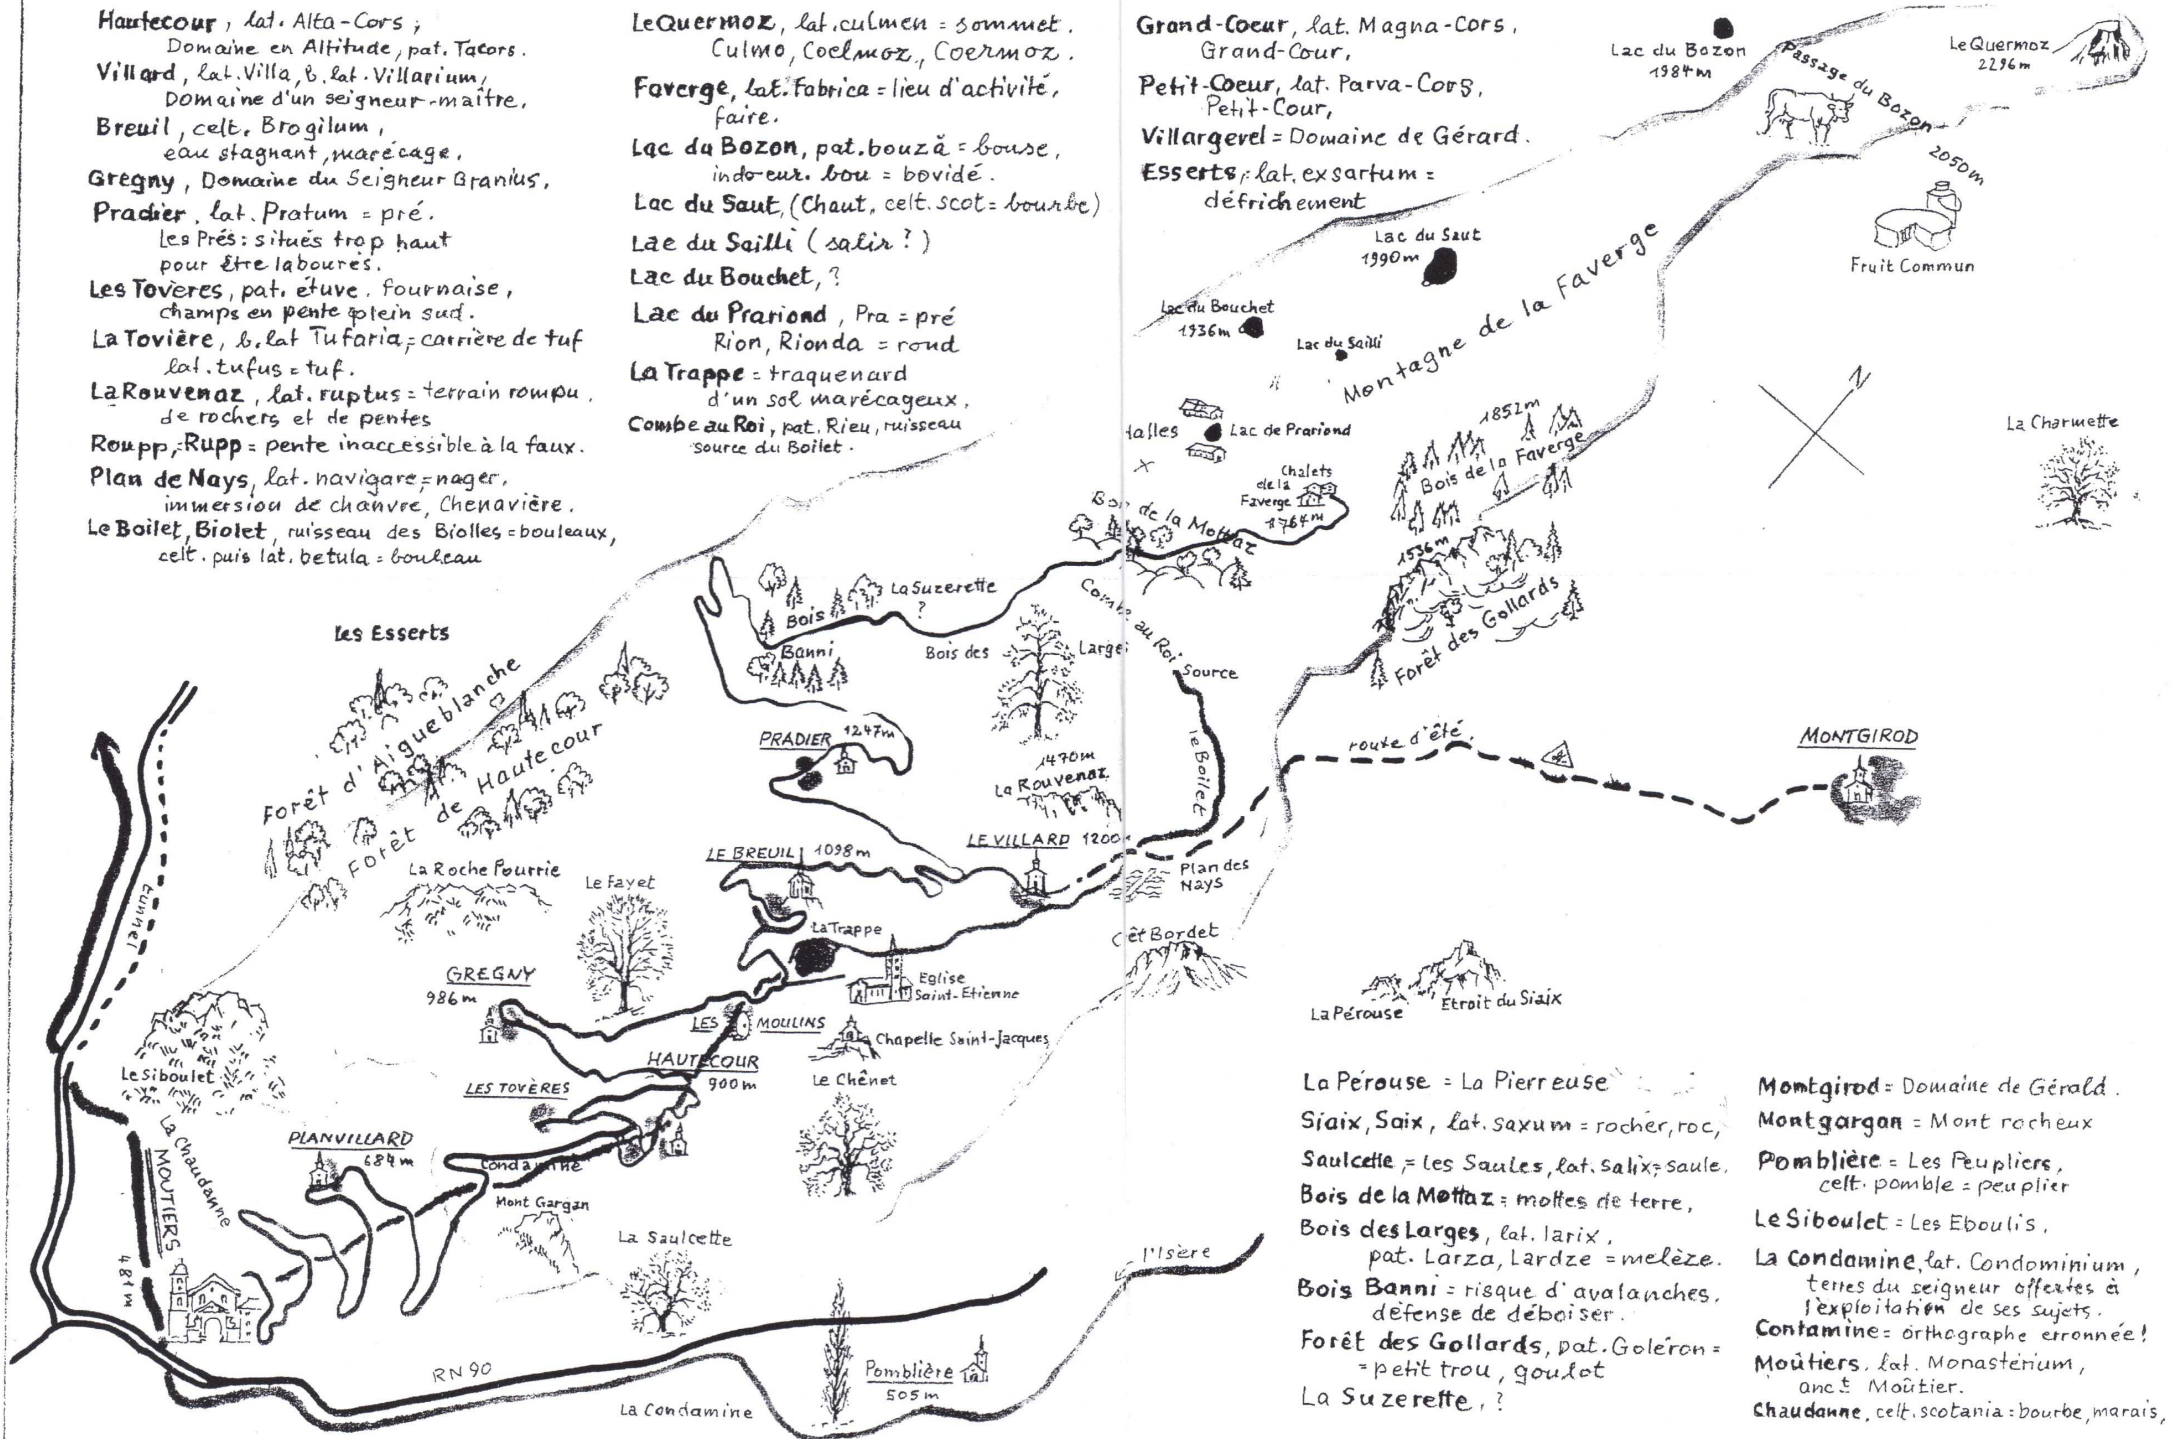 Hautecour, lat. Alta-Cors ;
Domaine en Altitude, pat. Tacors.
Villard, lat. Villa, b. lat. Villarium,
Domaine d'un seigneur-maître.
Breuil, celt. Brogilum,
eau stagnant, marécage.
Gregny, Domaine du Seigneur Granius.
Pradier, lat. Pratum = pré.
Les Prés : situés trop haut
pour être labourés.
Les Tovères, pat. étuve, fournaise,
champs en pente plein sud.
La Tovière, b. lat Tufaria = carrière de tuf
lat. tufus = tuf.
La Rouvenaz, lat. ruptus = terrain rompu,
de rochers et de pentes
Roupp, Rupp = pente inaccessible à la faux.
Plan de Nays, lat. navigare = nager,
immersion de chanvre, Chenavière.
Le Boilet, Biolet, ruisseau des Biolles = bouleaux,
celt. puis lat. betula = bouleau
Le Quermoz, lat. culmen = sommet.
Culmo, Coelmoz, Coermoz.
Faverge, lat. Fabrica = lieu d'activité,
faire.
Lac du Bozon, pat. bouză = bouse,
indo-eur. bou = bovidé.
Lac du Saut, (Chaut, celt. scot = bourbe)
Lac du Sailli (salir ?)
Lac du Bouchet, ?
Lac du Prariond, Pra = pré
Rion, Rionda = rond
La Trappe = traquenard
d'un sol marécageux,
Combe au Roi, pat. Rieu, ruisseau
source du Boilet.
Grand-Coeur, lat. Magna-Cors,
Grand-Cour,
Petit-Coeur, lat. Parva-Cors,
Petit-Cour,
Villargerel = Domaine de Gérard.
Esserts, lat. exsartum =
défrichement
Lac du Bozon
1984 m
Passage du Bozon
2050 m
Le Quermoz
2296 m
Fruit Commun
Lac du Saut
1990 m
Montagne de la Faverge
Lac du Bouchet
1936 m
Lac du Sailli
Halles
Lac de Prariond
Chalets
de la
Faverge
1764 m
1852 m
Bois de la Faverge
N
La Charmette
Bois de la Mottaz
1536 m
Forêt des Gollards
La Suzerette
?
Bois
Banni
Bois des Larges
Combe au Roi
Source
le Boilet
les Esserts
Forêt d'Aigueblanche
Forêt de Hautecour
PRADIER 1247 m
1470 m
La Rouvenaz
route d'été
MONTGIROD
LE VILLARD 1200
LE BREUIL 1098 m
Plan des
Nays
La Roche Pourrie
Le Fayet
La Trappe
Crêt Bordet
tunnel
GREGNY
986 m
Eglise
Saint-Etienne
La Pérouse
Etroit du Siaix
LES MOULINS
Chapelle Saint-Jacques
HAUTECOUR
900 m
Le Siboulet
LES TOVÈRES
Le Chênet
La Chaudanne
PLANVILLARD
684 m
Condamine
MOUTIERS
481 m
Mont Gargan
La Saulcette
l'Isère
RN 90
Pomblière
505 m
La Condamine
La Pérouse = La Pierreuse
Siaix, Saix, lat. saxum = rocher, roc,
Saulcette, = les Saules, lat. salix = saule.
Bois de la Mottaz = mottes de terre,
Bois des Larges, lat. larix,
pat. Larza, Lardze = melèze.
Bois Banni = risque d'avalanches,
défense de déboiser.
Forêt des Gollards, pat. Goléron =
= petit trou, goulot
La Suzerette, ?
Montgirod = Domaine de Gérald.
Montgargan = Mont rocheux
Pomblière = Les Peupliers,
celt. pomble = peuplier
Le Siboulet = Les Eboulis.
La Condamine, lat. Condominium,
terres du seigneur offertes à
l'exploitation de ses sujets.
Contamine = orthographe erronnée !
Moûtiers, lat. Monasterium,
anct Moûtier.
Chaudanne, celt. scotania : bourbe, marais,